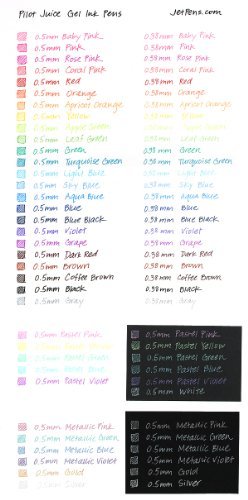 Pilot Juice Gel Ink Pens JetPens.com
0.5mm Baby Pink 0.38mm Baby Pink
0.5mm Pink 0.38mm Pink
0.5mm Rose Pink 0.38mm Rose Pink
0.5mm Coral Pink 0.38mm Coral Pink
0.5mm Red 0.38mm Red
0.5mm Orange 0.38mm Orange
0.5mm Apricot Orange 0.38mm Apricot Orange
0.5mm Yellow 0.38mm Yellow
0.5mm Apple Green 0.38mm Apple Green
0.5mm Leaf Green 0.38mm Leaf Green
0.5mm Green 0.38mm Green
0.5mm Turquoise Green 0.38mm Turquoise Green
0.5mm Light Blue 0.38mm Light Blue
0.5mm Sky Blue 0.38mm Sky Blue
0.5mm Aqua Blue 0.38mm Aqua Blue
0.5mm Blue 0.38mm Blue
0.5mm Blue Black 0.38mm Blue Black
0.5mm Violet 0.38mm Violet
0.5mm Grape 0.38mm Grape
0.5mm Dark Red 0.38mm Dark Red
0.5mm Brown 0.38mm Brown
0.5mm Coffee Brown 0.38mm Coffee Brown
0.5mm Black 0.38mm Black
0.5mm Gray 0.38mm Gray
0.5mm Pastel Pink 0.5mm Pastel Pink
0.5mm Pastel Yellow 0.5mm Pastel Yellow
0.5mm Pastel Green 0.5mm Pastel Green
0.5mm Pastel Blue 0.5mm Pastel Blue
0.5mm Pastel Violet 0.5mm Pastel Violet
0.5mm White
0.5mm Metallic Pink 0.5mm Metallic Pink
0.5mm Metallic Green 0.5mm Metallic Green
0.5mm Metallic Blue 0.5mm Metallic Blue
0.5mm Metallic Violet 0.5mm Metallic Violet
0.5mm Gold 0.5mm Gold
0.5mm Silver 0.5mm Silver